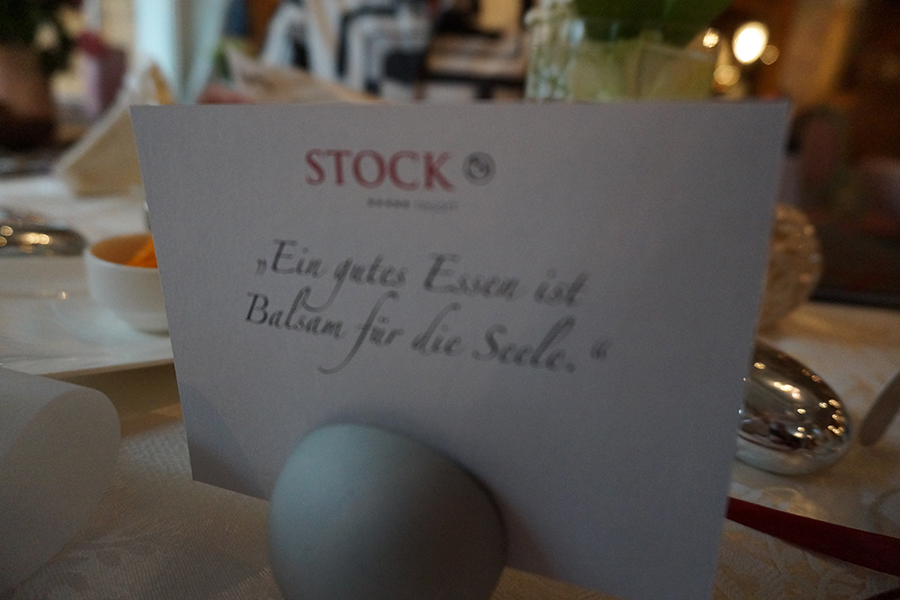 STOCK
„Ein gutes Essen ist
Balsam für die Seele. “